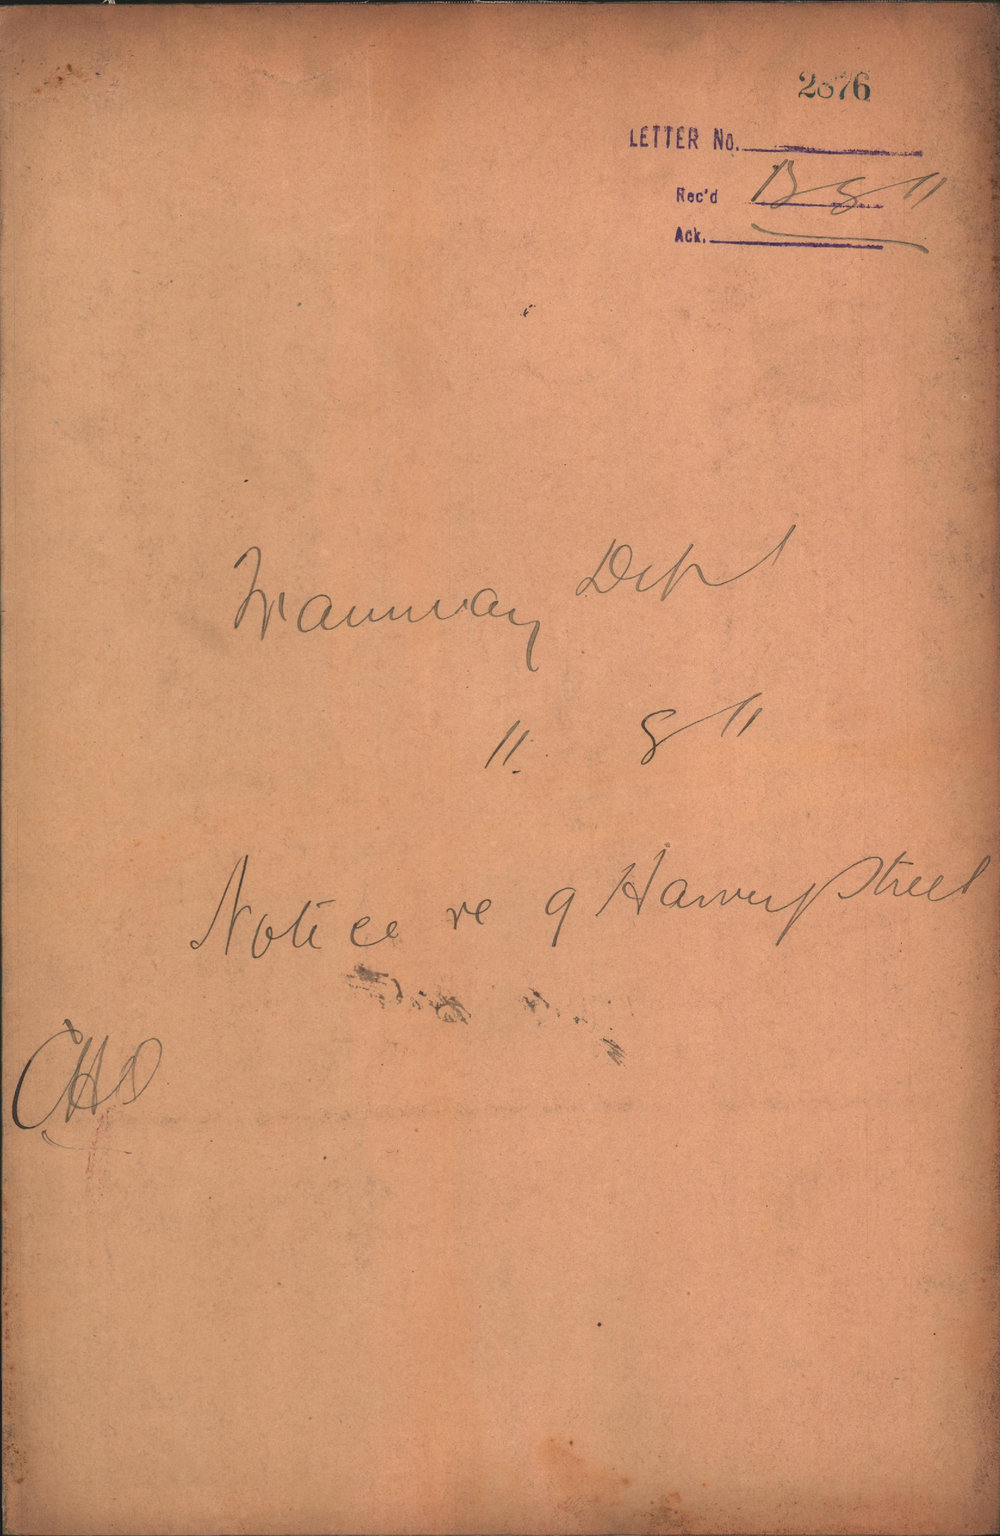 2876
LETTER No.
Rec'd 13 8 11
Ack.
Tramway Dept
11. 8 11
Notice re 9 Harvey Street